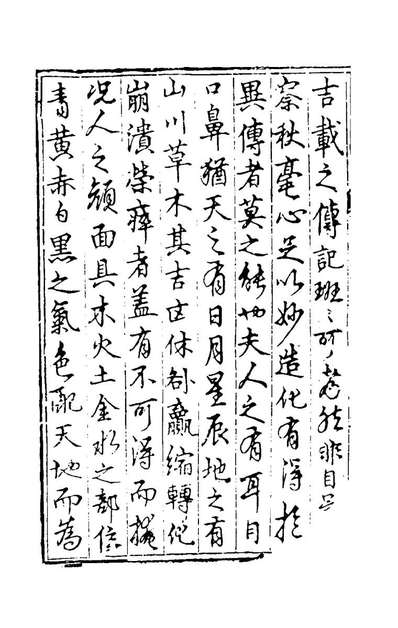 吉載之傳記班〻可考然非目足
察秋毫心足以妙造化有得於
異傳者莫之能也夫人之有耳目
口鼻猶天之有日月星辰地之有
山川草木其吉凶休咎贏縮轉化
崩潰榮瘁者蓋有不可得而掩
况人之顏面具木火土金水之部位
青黄赤白黒之氣色配天地而為